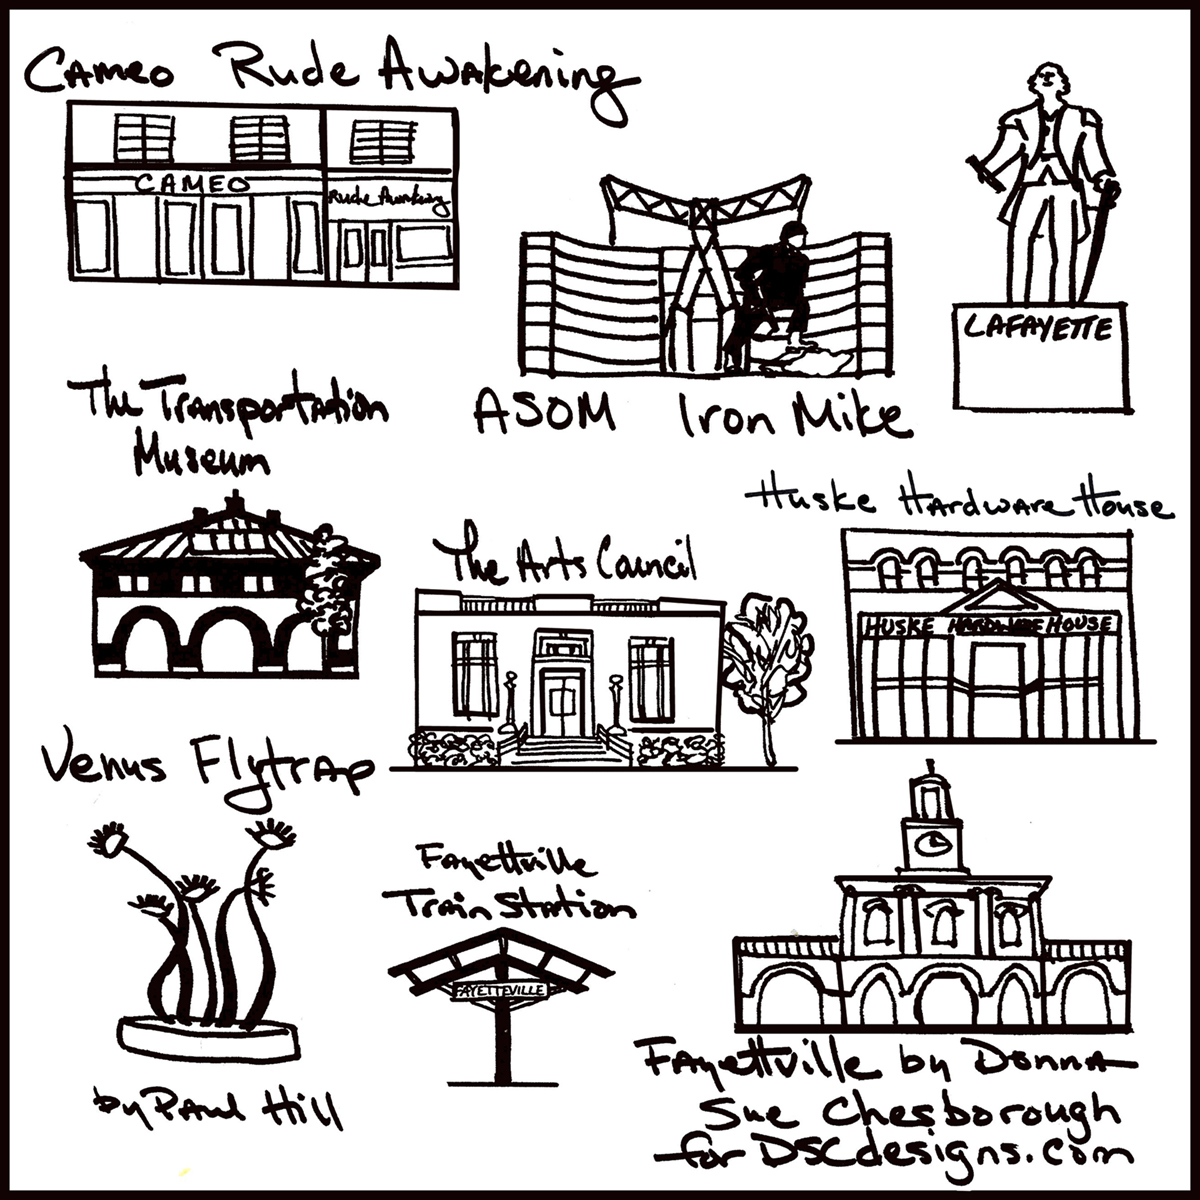 Cameo Rude Awakening
CAMEO
Rude Awakening
LAFAYETTE
ASOM Iron Mike
The Transportation
Museum
Huske Hardware House
HUSKE HARDWARE HOUSE
The Arts Council
Venus Flytrap
by Paul Hill
Fayettville
Train Station
FAYETTEVILLE
Fayettville by Donna
Sue Chesborough
for DSCdesigns.com